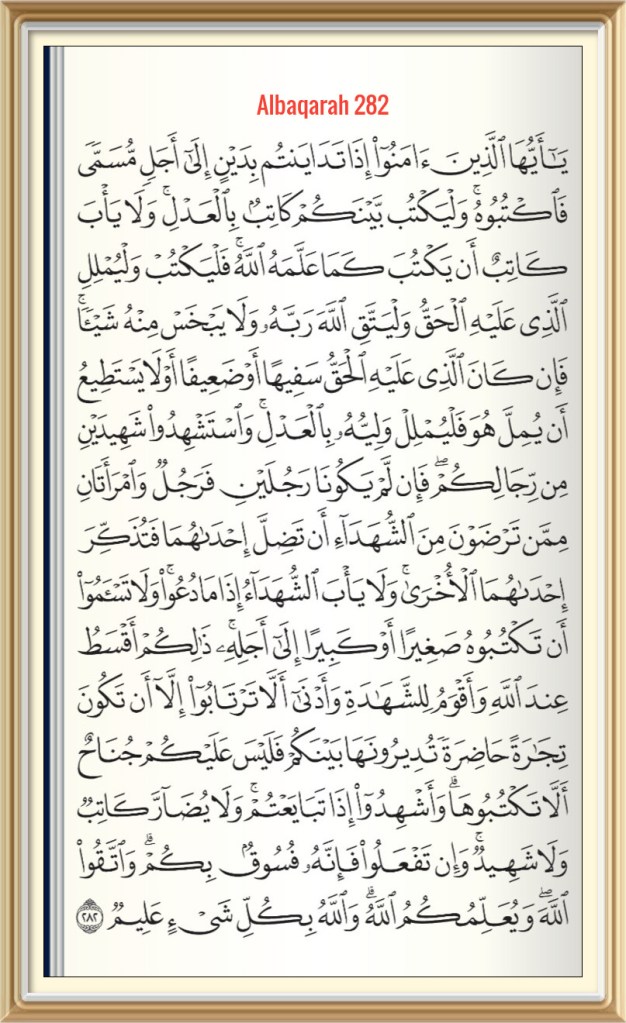 Albaqarah 282
يَـٰٓأَيُّهَا ٱلَّذِينَ ءَامَنُوٓا۟ إِذَا تَدَايَنتُم بِدَيْنٍ إِلَىٰٓ أَجَلٍ مُّسَمًّى
فَٱكْتُبُوهُ ۚ وَلْيَكْتُب بَّيْنَكُمْ كَاتِبٌۢ بِٱلْعَدْلِ ۚ وَلَا يَأْبَ
كَاتِبٌ أَن يَكْتُبَ كَمَا عَلَّمَهُ ٱللَّهُ ۚ فَلْيَكْتُبْ وَلْيُمْلِلِ
ٱلَّذِى عَلَيْهِ ٱلْحَقُّ وَلْيَتَّقِ ٱللَّهَ رَبَّهُۥ وَلَا يَبْخَسْ مِنْهُ شَيْـًٔا ۚ
فَإِن كَانَ ٱلَّذِى عَلَيْهِ ٱلْحَقُّ سَفِيهًا أَوْ ضَعِيفًا أَوْ لَا يَسْتَطِيعُ
أَن يُمِلَّ هُوَ فَلْيُمْلِلْ وَلِيُّهُۥ بِٱلْعَدْلِ ۚ وَٱسْتَشْهِدُوا۟ شَهِيدَيْنِ
مِن رِّجَالِكُمْ ۖ فَإِن لَّمْ يَكُونَا رَجُلَيْنِ فَرَجُلٌ وَٱمْرَأَتَانِ
مِمَّن تَرْضَوْنَ مِنَ ٱلشُّهَدَآءِ أَن تَضِلَّ إِحْدَىٰهُمَا فَتُذَكِّرَ
إِحْدَىٰهُمَا ٱلْأُخْرَىٰ ۚ وَلَا يَأْبَ ٱلشُّهَدَآءُ إِذَا مَا دُعُوا۟ ۚ وَلَا تَسْـَٔمُوٓا۟
أَن تَكْتُبُوهُ صَغِيرًا أَوْ كَبِيرًا إِلَىٰٓ أَجَلِهِۦ ۚ ذَٰلِكُمْ أَقْسَطُ
عِندَ ٱللَّهِ وَأَقْوَمُ لِلشَّهَـٰدَةِ وَأَدْنَىٰٓ أَلَّا تَرْتَابُوٓا۟ ۖ إِلَّآ أَن تَكُونَ
تِجَـٰرَةً حَاضِرَةً تُدِيرُونَهَا بَيْنَكُمْ فَلَيْسَ عَلَيْكُمْ جُنَاحٌ
أَلَّا تَكْتُبُوهَا ۗ وَأَشْهِدُوٓا۟ إِذَا تَبَايَعْتُمْ ۚ وَلَا يُضَآرَّ كَاتِبٌ
وَلَا شَهِيدٌ ۚ وَإِن تَفْعَلُوا۟ فَإِنَّهُۥ فُسُوقٌۢ بِكُمْ ۗ وَٱتَّقُوا۟
ٱللَّهَ ۖ وَيُعَلِّمُكُمُ ٱللَّهُ ۗ وَٱللَّهُ بِكُلِّ شَىْءٍ عَلِيمٌ ٢٨٢